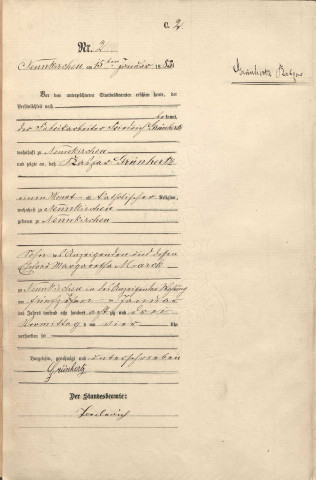 C. 2.
Nr. 2
Neunkirchen am 15ten Januar 1883
Grünhertz Balzar
Vor dem unterzeichneten Standesbeamten erschien heute, der
Persönlichkeit nach
kannt,
der Fabrikarbeiter Grünhertz
wohnhaft zu Neunkirchen
und zeigte an, daß Balzar Grünhertz
einen Monat alt, katholischer Religion,
wohnhaft zu Neunkirchen
geboren zu Neunkirchen
Sohn des Anzeigenden und dessen
Ehefrau Margaretha Marck
zu Neunkirchen in des Anzeigenden Wohnung
am fünfzehnten Januar
des Jahres tausend acht hundert achtzig und drei
Vormittags um vier Uhr
verstorben sei
Vorgelesen, genehmigt und unterschrieben
Grünhertz
Der Standesbeamte: